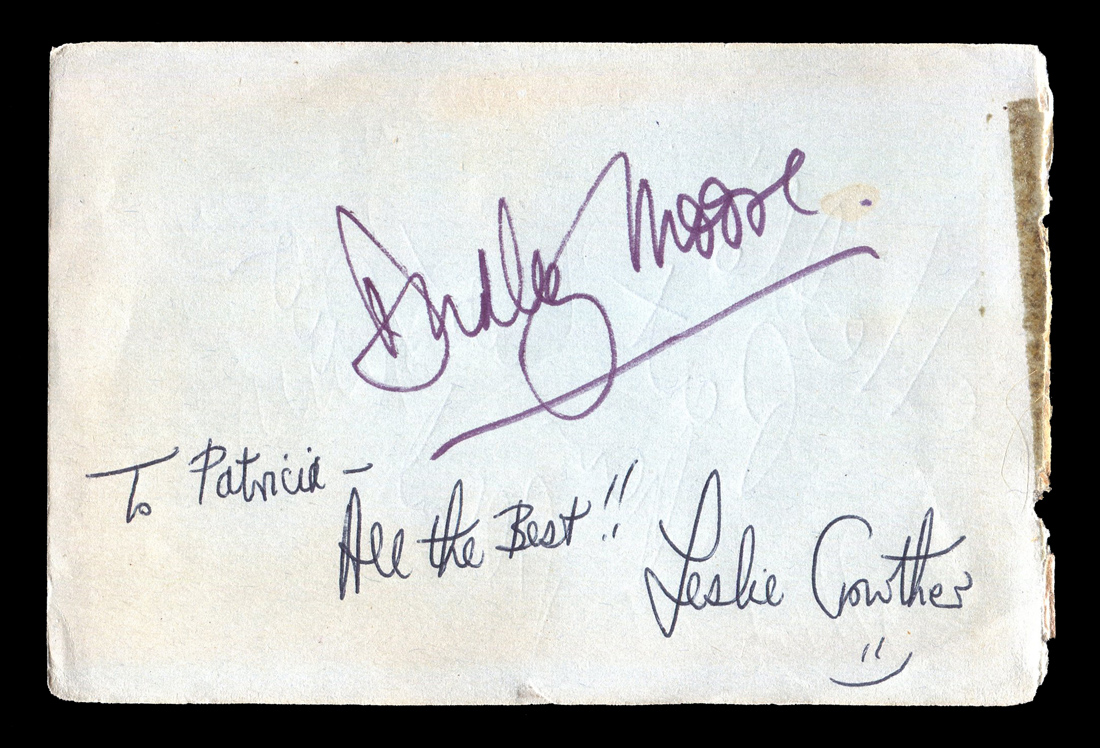 Dudley Moore
To Patricia -
All the Best!!
Leslie Crowther